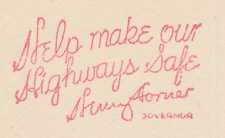 Help make our
Highways Safe
Henry Horner
GOVERNOR